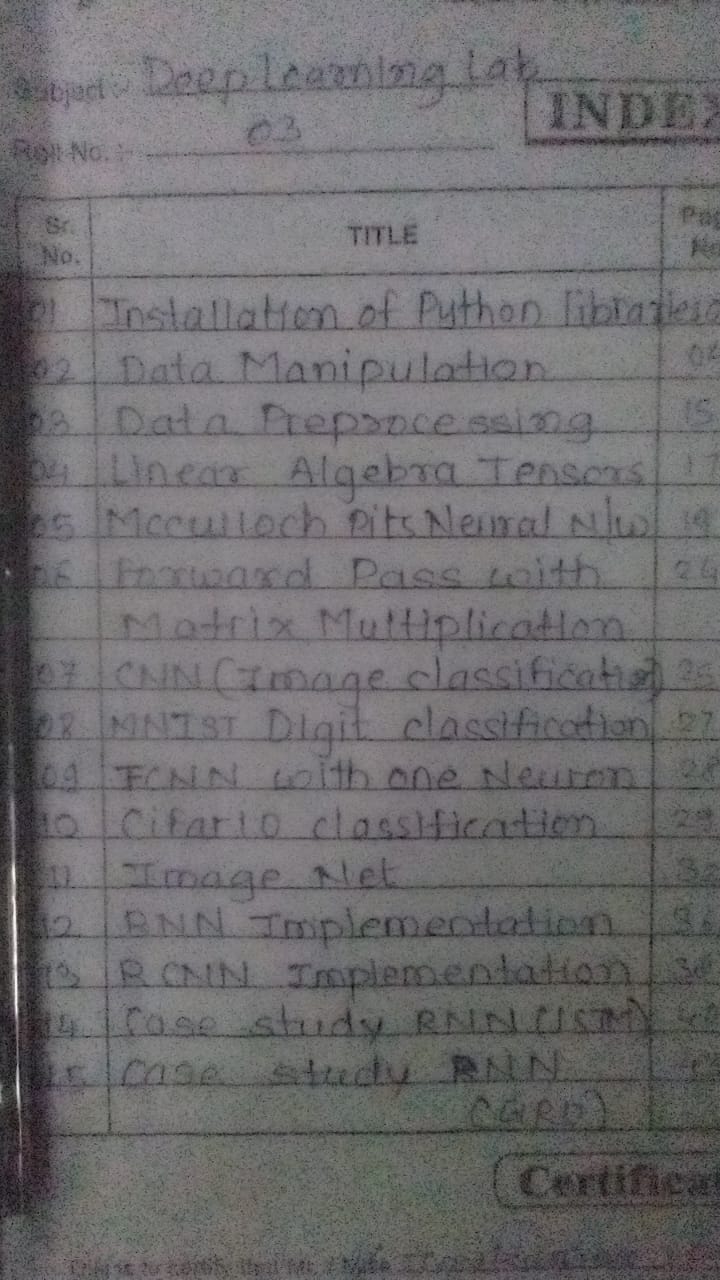 Subject :- Deep learning Lab
INDEX
Roll No. :- 03
Sr. No. TITLE Pag No
01 Installation of Python libraries
02 Data Manipulation
03 Data Preprocessing 15
04 Linear Algebra Tensors 17
05 Mcculloch Pits Neural N/w 19
06 Forward Pass with 24
Matrix Multiplication
07 CNN (Image classification) 25
08 MNIST Digit classification 27
09 FCNN with one Neuron 28
10 Cifar10 classification 29
11 Image Net
12 RNN Implementation
13 RCNN Implementation
14 Case study RNN (LSTM)
15 Case study RNN
(GRU)
Certifica
This is to certify that Mr. / Miss